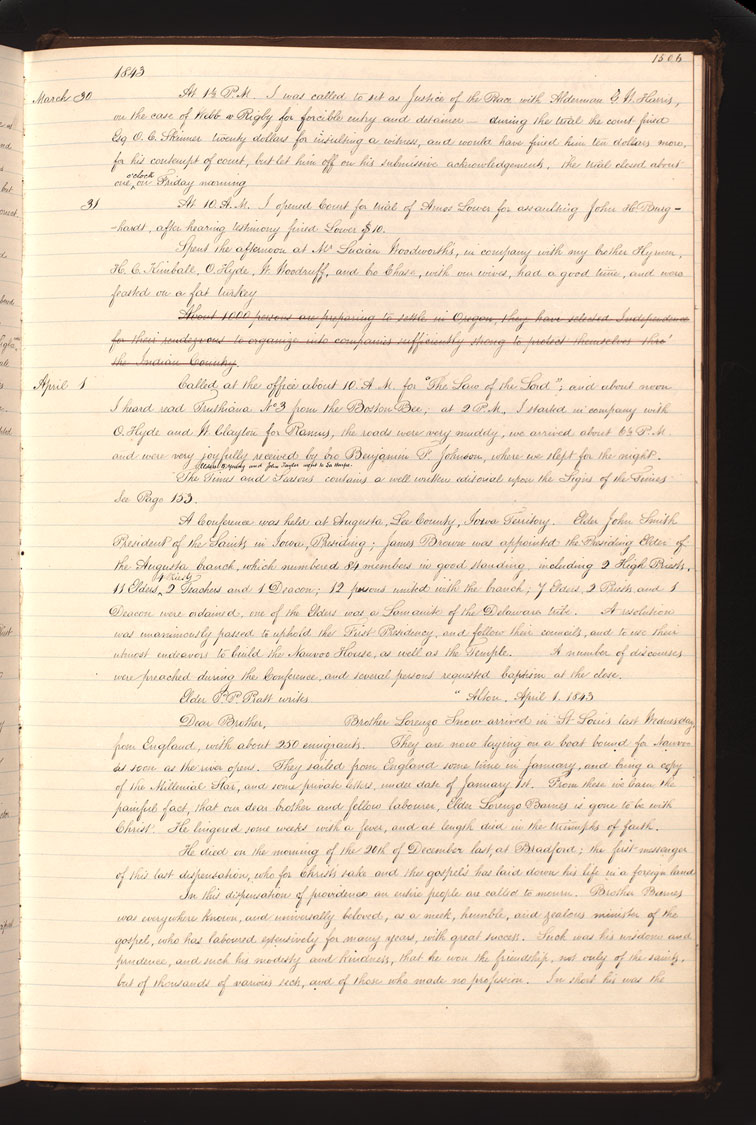 1506
1843
March 30 At 1½ P.M. I was called to sit as Justice of the Peace with Alderman G. W. Harris,
on the case of Webb v Rigby for forcible entry and detainer — during the trial the court fined
Esq O. C. Skinner twenty dollars for insulting a witness, and would have fined him ten dollars more,
for his contempt of court, but let him off on his submissive acknowledgement. The trial closed about
one o'clock on Friday morning
31 At 10. A.M. I opened Court for trial of Amos Lower for assaulting John H. Burg-
-hardt, after hearing testimony fined Lower $10.
Spent the afternoon at Mr Lucian Woodworth's, in company with my brother Hyrum,
H. C. Kimball, O. Hyde, W. Woodruff, and bro Chase, with our wives, had a good time, and were
feasted on a fat turkey
About 1000 persons are preparing to settle in Oregon, they have selected Independence
for their rendezvous to organize into companies sufficiently strong to protect themselves thro'
the Indian Country.
April 1 Called at the office about 10. A.M. for "The Law of the Lord"; and about noon
I heard read Truthiana No 3 from the Boston Bee; at 2 P.M. I started in company with
O. Hyde and W. Clayton for Ramus, the roads were very muddy, we arrived about 6½ P.M.
and were very joyfully received by bro Benjamin F. Johnson, where we slept for the night.
Elders B. Young and John Taylor went to La Harpe.
The Times and Seasons contains a well written editorial upon the Signs of the Times
See Page 153.
A Conference was held at Augusta, Lee County, Iowa Territory. Elder John Smith
President of the Saints in Iowa, Presiding; James Brown was appointed the Presiding Elder of
the Augusta branch, which numbered 84 members in good standing, including 2 High Priests,
11 Elders, 4 Priests 2 Teachers and 1 Deacon; 12 persons united with the branch; 7 Elders, 2 Priests and 1
Deacon were ordained, one of the Elders was a Lamanite of the Delaware tribe. A resolution
was unanimously passed to uphold the First Presidency, and follow their councils, and to use their
utmost endeavors to build the Nauvoo House, as well as the Temple. A number of discourses
were preached during the Conference, and several persons requested baptism at the close.
Elder P. P. Pratt writes "Alton, April 1. 1843
Dear Brother, Brother Lorenzo Snow arrived in St Louis last Wednesday
from England, with about 250 emigrants. They are now laying on a boat bound for Nauvoo
as soon as the river opens. They sailed from England some time in January, and bring a copy
of the Millenial Star, and some private letters, under date of January 1st. From these we learn the
painful fact, that our dear brother and fellow labourer, Elder Lorenzo Barnes is gone to be with
Christ. He lingered some weeks with a fever, and at length died in the triumphs of faith.
He died on the morning of the 20th of December last, at Bradford; the first messenger
of this last dispensation, who for Christ's sake and the gospel's has laid down his life in a foreign land
In this dispensation of providence an entire people are called to mourn. Brother Barnes
was everywhere known, and universally beloved, as a meek, humble, and zealous minister of the
gospel, who has laboured extensively for many years, with great success. Such was his wisdom and
prudence, and such his modesty and kindness, that he won the friendship, not only of the saints,
but of thousands of various sects, and of those who made no profession. In short his was the